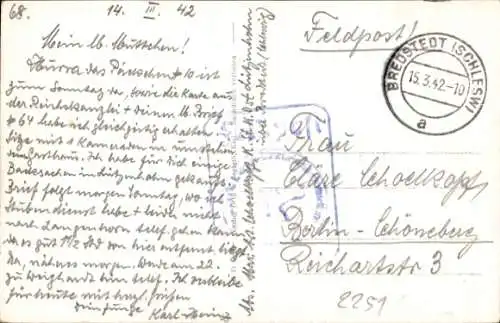 68. 14. III. 42
Mein lb. Muttchen!
Hurra das Päckchen # 10 ist
zum Sonntag da, sowie die Karte aus
der Reichskanzlei + deinen lb. Brief
# 64 habe ich gleichzeitig erhalten
Sitze mit 1 Kameraden in
dem Gasthaus. Ich habe für dich einige
gekauft.
Brief folgt morgen Sonntag, wo ich
Stubendienst habe + leider nicht
nach Langenhorn telef. gehen kann
da es gut 1 1/2 Std von hier entfernt liegt
Da, näheres morgen. Werde am 22.
telef. Ich verbleibe
für heute mit herzl. Grüßen
dein Junge Karl-Heinz
Feldpost!
BREDSTEDT (SCHLESW)
15.3.42-10
a
Frau
Cläre Schoelkopf
Berlin-Schöneberg
Reichartstr. 3
2251